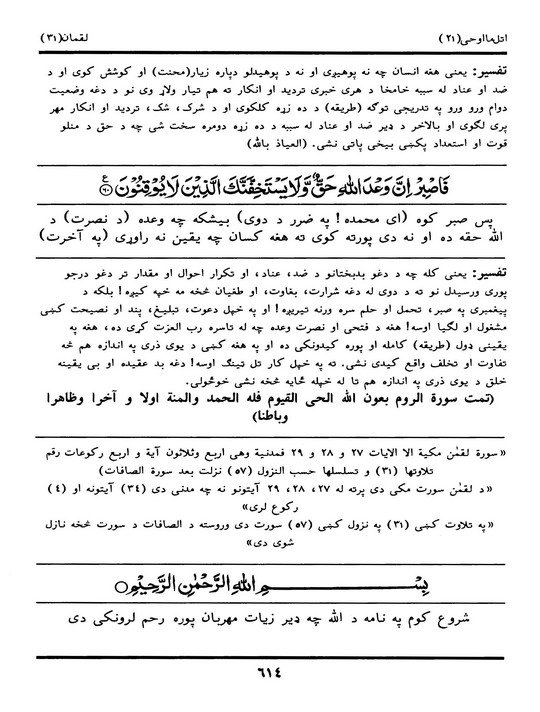 اتل ما اوحی (۲۱)
لقمان (۳۱)
تفسیر: یعنی هغه انسان چه نه پوهیږی او نه د پوهیدلو دپاره زیار (محنت) او کوشش کوی او د
ضد او عناد له سببه خامخا د هری خبری تردید او انکار ته هم تیار ولاړ وی نو د دغه وضعیت
دوام ورو ورو په تدریجی توګه (طریقه) د ده زړه کلکوی او د شرک، شک، تردید او انکار مهر
پری لګوی او بالاخر د ډیر ضد او عناد له سببه د ده زړه دومره سخت شی چه د حق د منلو
قوت او استعداد پکښی بیخی پاتی نشی. (العیاذ بالله)
فَاصْبِرْ اِنَّ وَعْدَ اللّٰهِ حَقٌّ وَّلَا يَسْتَخِفَّنَّكَ الَّذِيْنَ لَا يُوْقِنُوْنَ ﴿۶۰﴾ ع
پس صبر کوه (ای محمده! په ضرر د دوی) بیشکه چه وعده (د نصرت) د
الله حقه ده او نه دی پورته کوی ته هغه کسان چه یقین نه راوړی (په آخرت)
تفسیر: یعنی کله چه د دغو بدبختانو د ضد، عناد، او تکرار احوال او مقدار تر دغو درجو
پوری ورسیدل نو ته د دوی له دغه شرارت، بغاوت، او طغیان څخه مه خپه کیږه! بلکه د
پیغمبری په صبر، تحمل او حلم سره ورنه تیریږه! او په خپل دعوت، تبلیغ، پند او نصیحت کښی
مشغول او لګیا اوسه! هغه د فتحی او نصرت وعده چه له تاسره رب العزت کړی ده، هغه په
یقینی ډول (طریقه) کامله او پوره کیدونکی ده او په هغه کښی د یوی ذری په اندازه هم څه
تفاوت او تخلف واقع کیدی نشی. ته په خپل کار تل ټینګ اوسه! دغه بد عقیده او بی یقینه
خلق د یوی ذری په اندازه هم تا له خپله ځایه څخه نشی خوځولی.
(تمت سورة الروم بعون الله الحی القیوم فله الحمد والمنة اولا و آخرا وظاهرا
وباطنا)
«سورة لقمٰن مکیة الا الایات ۲۷ و ۲۸ و ۲۹ فمدنیة وهی اربع وثلاثون آیة و اربع رکوعات رقم
تلاوتها (۳۱) و تسلسلها حسب النزول (۵۷) نزلت بعد سورة الصافات)
«د لقمٰن سورت مکی دی پرته له ۲۷، ۲۸، ۲۹ آیتونو نه چه مدنی دی (۳۴) آیتونه او (۴)
رکوع لری»
«په تلاوت کښی (۳۱) په نزول کښی (۵۷) سورت دی وروسته د الصافات د سورت څخه نازل
شوی دی»
بِسْمِ اللّٰهِ الرَّحْمٰنِ الرَّحِيْمِ ○
شروع کوم په نامه د الله چه ډیر زیات مهربان پوره رحم لرونکی دی
٦١٤